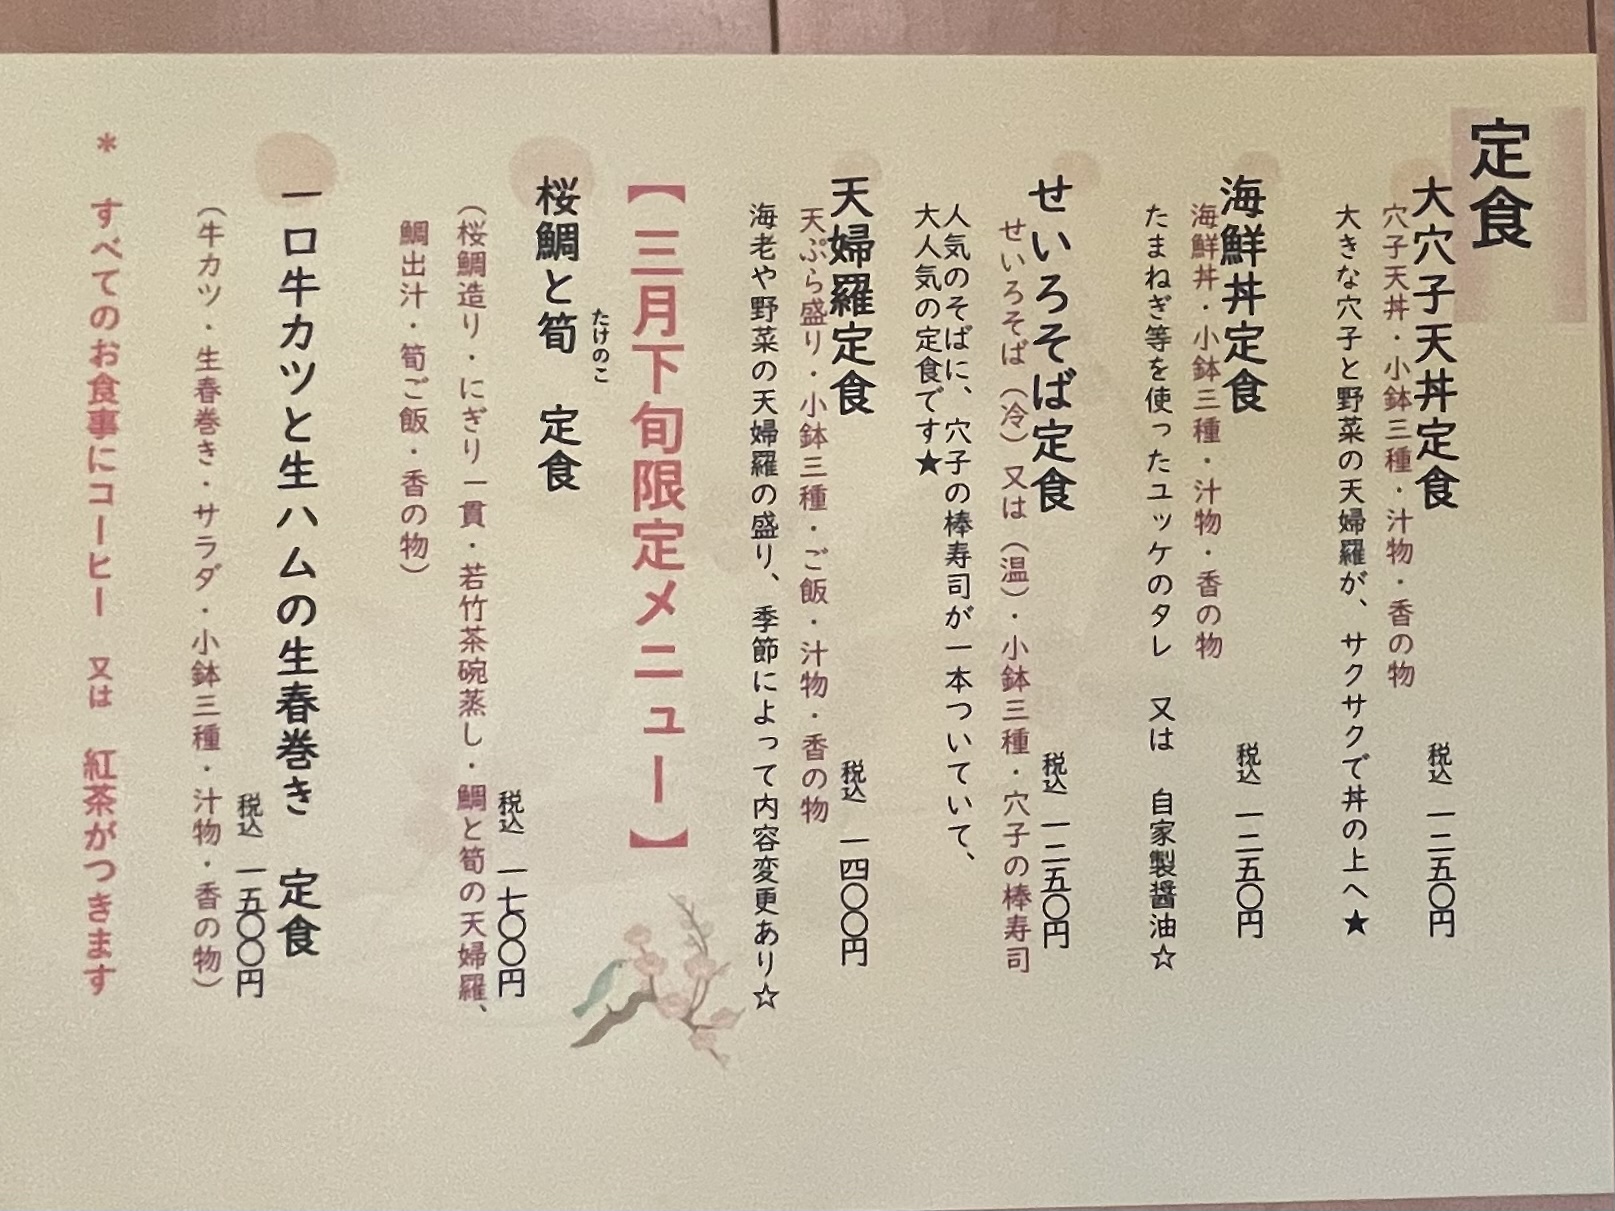 定食
大穴子天丼定食 税込 一二五〇円
穴子天丼・小鉢三種・汁物・香の物
大きな穴子と野菜の天婦羅が、サクサクで丼の上へ★
海鮮丼定食 税込 一二五〇円
海鮮丼・小鉢三種・汁物・香の物
たまねぎ等を使ったユッケのタレ 又は 自家製醤油☆
せいろそば定食 税込 一二五〇円
せいろそば（冷）又は（温）・小鉢三種・穴子の棒寿司
人気のそばに、穴子の棒寿司が一本ついていて、
大人気の定食です★
天婦羅定食 税込 一四〇〇円
天ぷら盛り・小鉢三種・ご飯・汁物・香の物
海老や野菜の天婦羅の盛り、季節によって内容変更あり☆
【三月下旬限定メニュー】
たけのこ
桜鯛と筍 定食 税込 一七〇〇円
（桜鯛造り・にぎり一貫・若竹茶碗蒸し・鯛と筍の天婦羅、
鯛出汁・筍ご飯・香の物）
一口牛カツと生ハムの生春巻き 定食
税込 一五〇〇円
（牛カツ・生春巻き・サラダ・小鉢三種・汁物・香の物）
＊ すべてのお食事にコーヒー 又は 紅茶がつきます